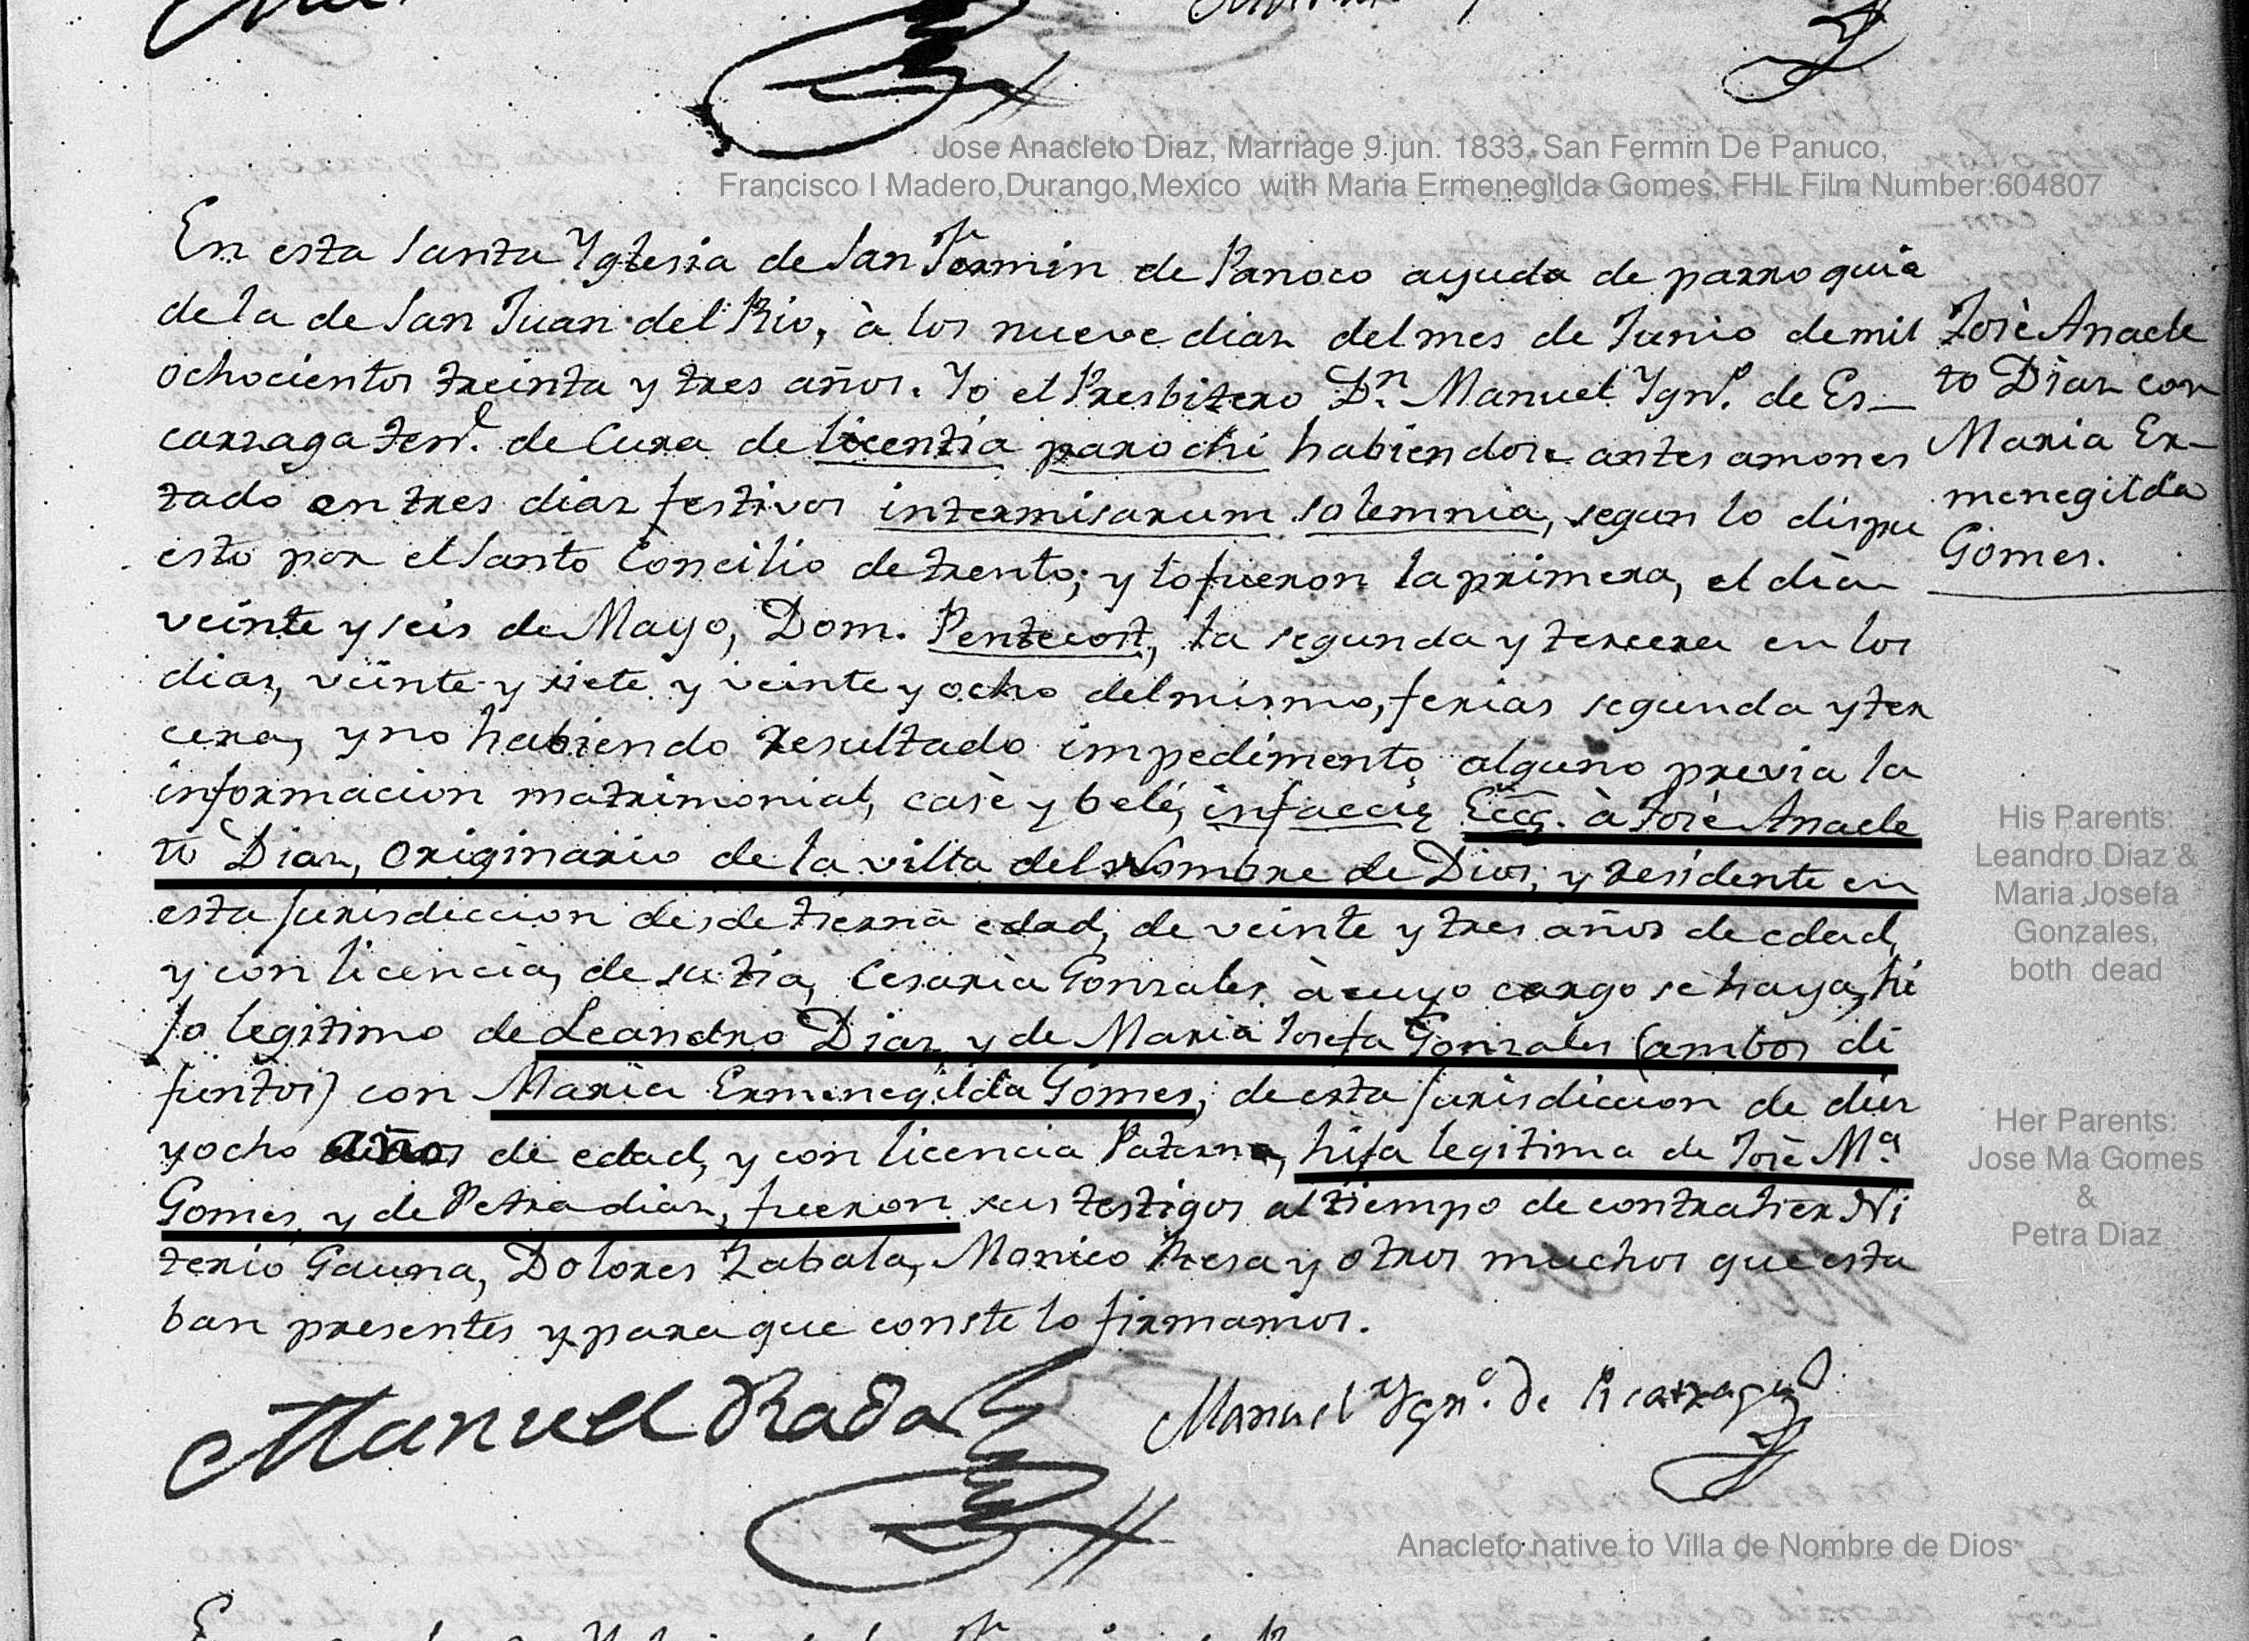 Jose Anacleto Diaz, Marriage 9 jun. 1833, San Fermin De Panuco,
Francisco I Madero,Durango,Mexico with Maria Ermenegilda Gomes, FHL Film Number:604807
En esta Santa Yglesia de San Fermin de Panoco ayuda de parroquia
de la de San Juan del Rio, à los nueve dias del mes de Junio de mil
ochocientos treinta y tres años. Yo el Presbitero Dn. Manuel Ygno. de Es-
carzaga ten.e de Cura de licentia parochi habiendose antes amones
tado en tres dias festivos intermisarum solemnia, segun lo dispu
esto por el Santo Concilio de trento; y lo fueron la primera, el dia
veinte y seis de Mayo, Dom. Pentecost, la segunda y tercera en los
dias, veinte y siete y veinte y ocho del mismo, ferias segunda y ter
cera, y no habiendo resultado impedimento alguno previa la
informacion matrimonial, casè y belé, infaccię Eccę. à Josè Anacle
to Dias, originario de la villa del Nombre de Dios, y residente en
esta jurisdiccion desde tierna edad, de veinte y tres años de edad,
y con licencia, de su tia, Cesaria Gonzales à cuyo cargo se haya, hi
jo legitimo de Leandro Dias y de Maria Josefa Gonzales (ambos di
funtos) con Maria Ermenegilda Gomes, de esta jurisdiccion de diez
y ocho años de edad, y con licencia Paterna, hija legitima de Josè Ma.
Gomes, y de Petra dias, fueron sus testigos al tiempo de contraher
terio Gauna, Dolores Zabala, Monico Mesa y otros muchos que esta
ban presentes y para que conste lo firmamos.
Manuel Rada
Manuel Ygno. de Escarzaga
Josè Anacle
to Dias con
Maria Er-
menegilda
Gomes.
His Parents:
Leandro Diaz &
Maria Josefa
Gonzales,
both dead
Her Parents:
Jose Ma Gomes
&
Petra Diaz
Anacleto native to Villa de Nombre de Dios